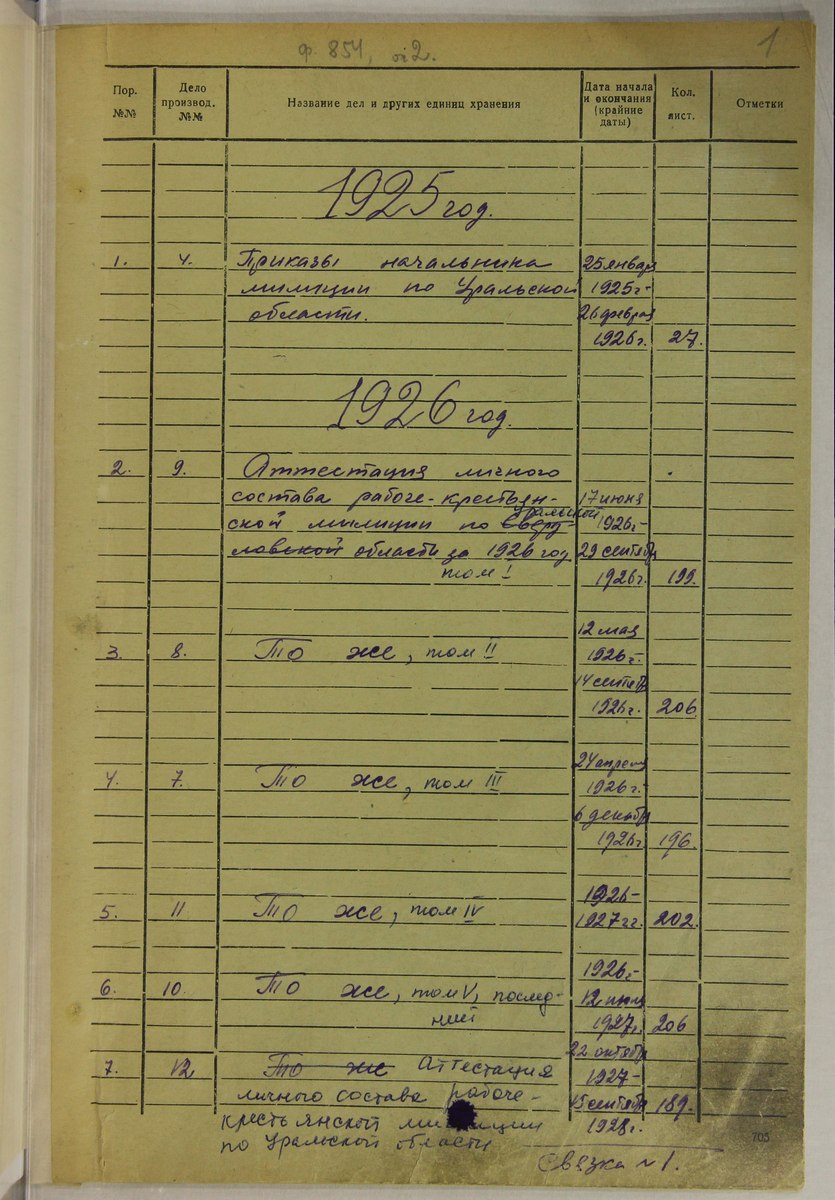 ф. 854, оп 2.
1
Пор. №№ Дело производ. №№ Название дел и других единиц хранения Дата начала и окончания (крайние даты) Кол. лист. Отметки
1925 год.
1. 4. Приказы начальника 25 января
милиции по Уральской 1925 г -
области. 26 феврал
1926 г. 27.
1926 год.
2. 9. Аттестация личного
состава рабоче-крестьян- 17 июня
Уральской
ской милиции по Сверд 1926 г -
ловской области за 1926 год 29 сентябр
том I 1926 г. 199.
12 мая
3. 8. То же, том II 1926 г. -
14 сентябр
1926 г. 206.
24 апреля
4. 7. То же, том III 1926 г. -
6 декабр
1926 г. 196.
1926 -
5. 11 То же, том IV 1927 гг. 202.
1926 -
6. 10. То же, том V, послед- 12 июля
ний 1927 г. 206
22 октябр
7. 12 То же Аттестация 1927 -
личного состава рабоче- 15 сентябр 189.
крестьянской милиции 1928 г.
по Уральской области
Связка № 1.
705